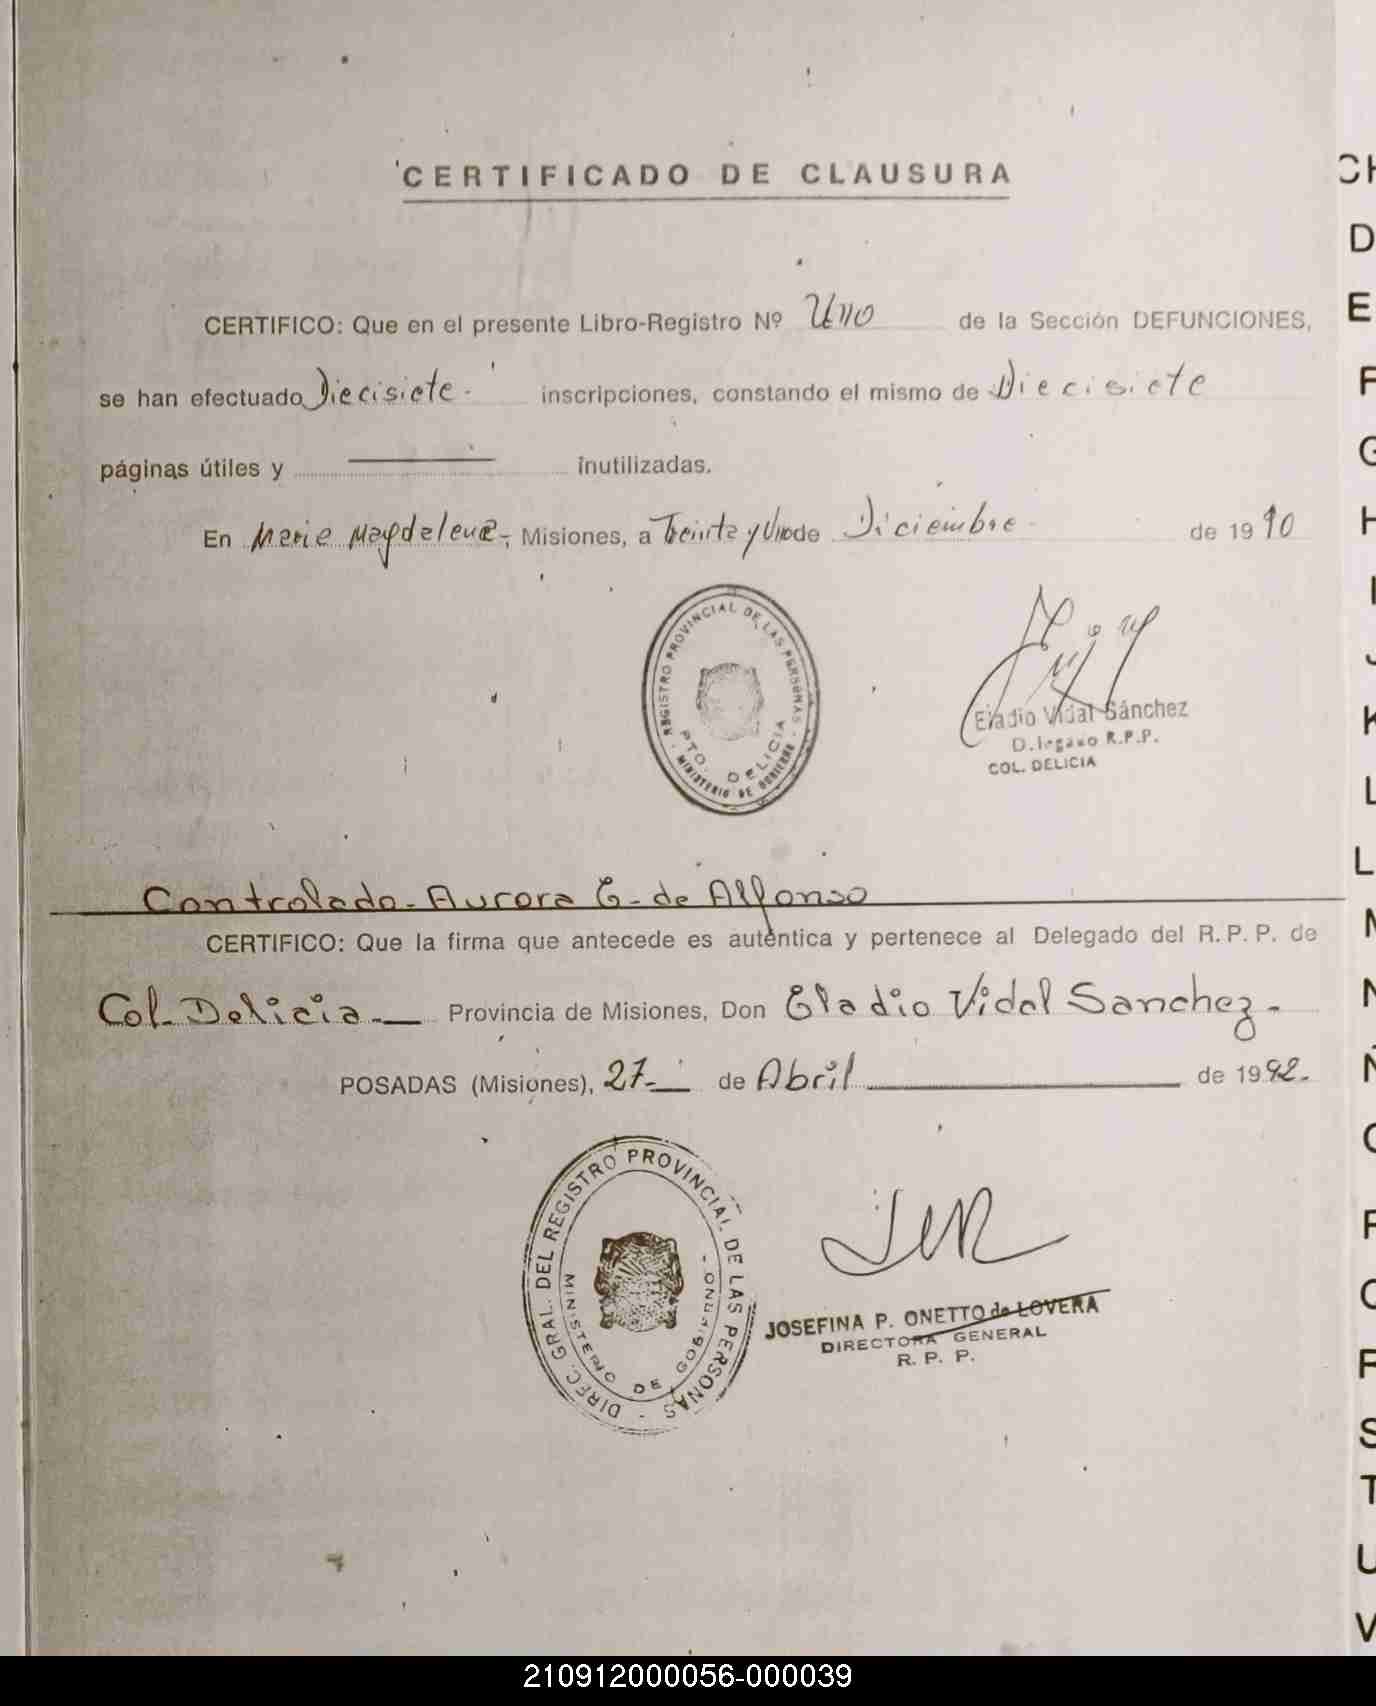 CERTIFICADO DE CLAUSURA
CERTIFICO: Que en el presente Libro-Registro Nº Uno de la Sección DEFUNCIONES,
se han efectuado Diecisiete.- inscripciones, constando el mismo de Diecisiete
páginas útiles y ——— inutilizadas.
En Maria Magdalena, Misiones, a Treinta y Uno de Diciembre de 1990
REGISTRO PROVINCIAL DE LAS PERSONAS
PTO. DELICIA
MINISTERIO DE GOBIERNO
Eladio Vidal Sánchez
Delegado R.P.P.
COL. DELICIA
Controlado- Aurora G- de Alfonso
CERTIFICO: Que la firma que antecede es auténtica y pertenece al Delegado del R. P. P. de
Col- Delicia.— Provincia de Misiones, Don Eladio Vidal Sanchez.-
POSADAS (Misiones), 27.— de Abril ——— de 1992.
DIREC. GRAL. DEL REGISTRO PROVINCIAL DE LAS PERSONAS -
MINISTERIO DE GOBIERNO -
JOSEFINA P. ONETTO de LOVERA
DIRECTORA GENERAL
R. P. P.
CH
D
E
F
G
H
I
J
K
L
L
M
N
Ñ
O
P
Q
R
S
T
U
V
210912000056-000039